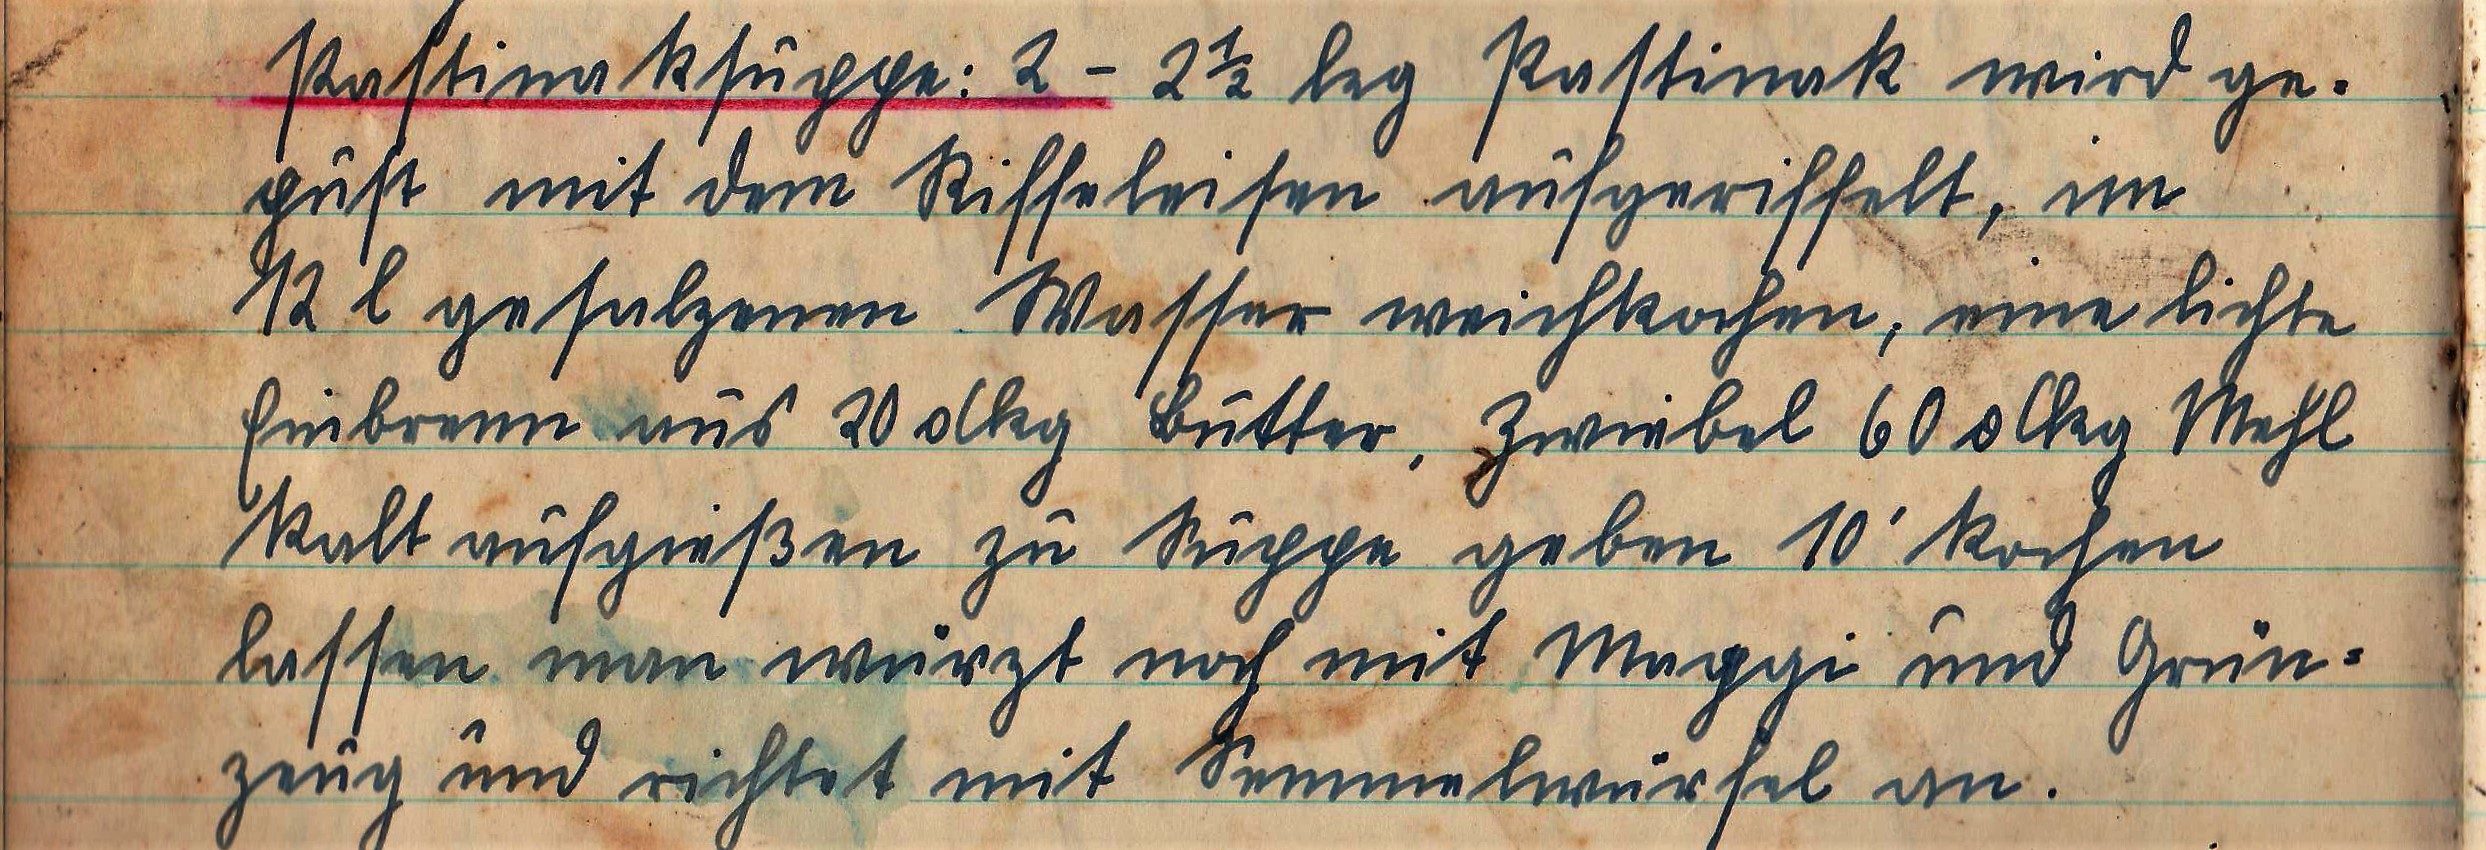 Pastinaksuppe: 2 - 2½ kg Pastinak wird ge-
putzt mit dem Riffeleisen aufgeriffelt, im
12 l gesalzenen Wasser weichkochen, eine lichte
Einbrenn aus 20 dkg Butter, Zwiebel 60 dkg Mehl
Kalt aufgießen zu Suppe geben 10' kochen
lassen man würzt noch mit Maggi und Grün-
zeug und richtet mit Semmelwürfel an.